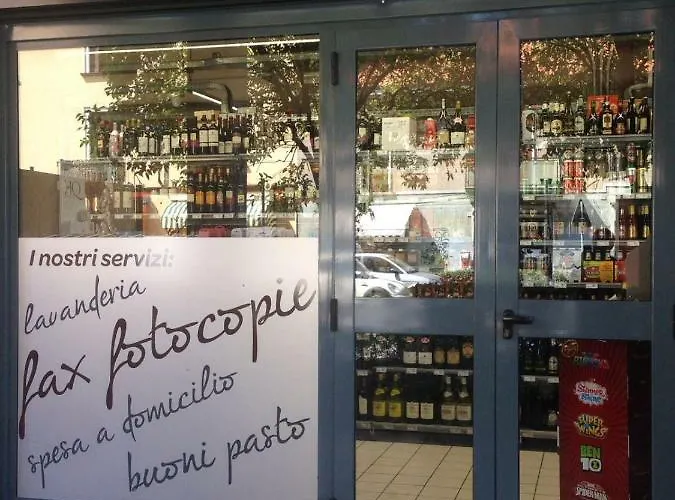 I nostri servizi:
lavanderia
fax fotocopie
spesa a domicilio
buoni pasto
SUPER
WINGS
BEN
10